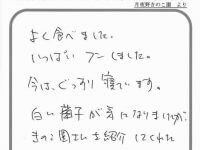 月夜野きのこ園 より
よく食べました。
いっぱい フンしました。
今は、ぐっすり 寝ています。
白い 菌子が 気に なりましたが
きのこ園さんを 紹介してくれた